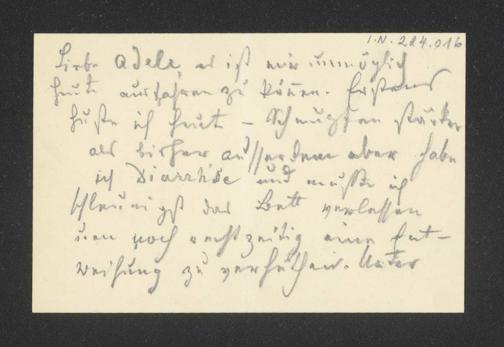 I.N. 224.016
Liebe Adele, es ist mir unmöglich
heute ausfahren zu können. Erstens
huste ich heute – Schnupfen stärker
als bisher ausserdem aber habe
ich Diarrhöe und musste ich
schleunigst das Bett verlassen
um noch rechtzeitig eine Ent-
weihung zu verhüthen. Unter